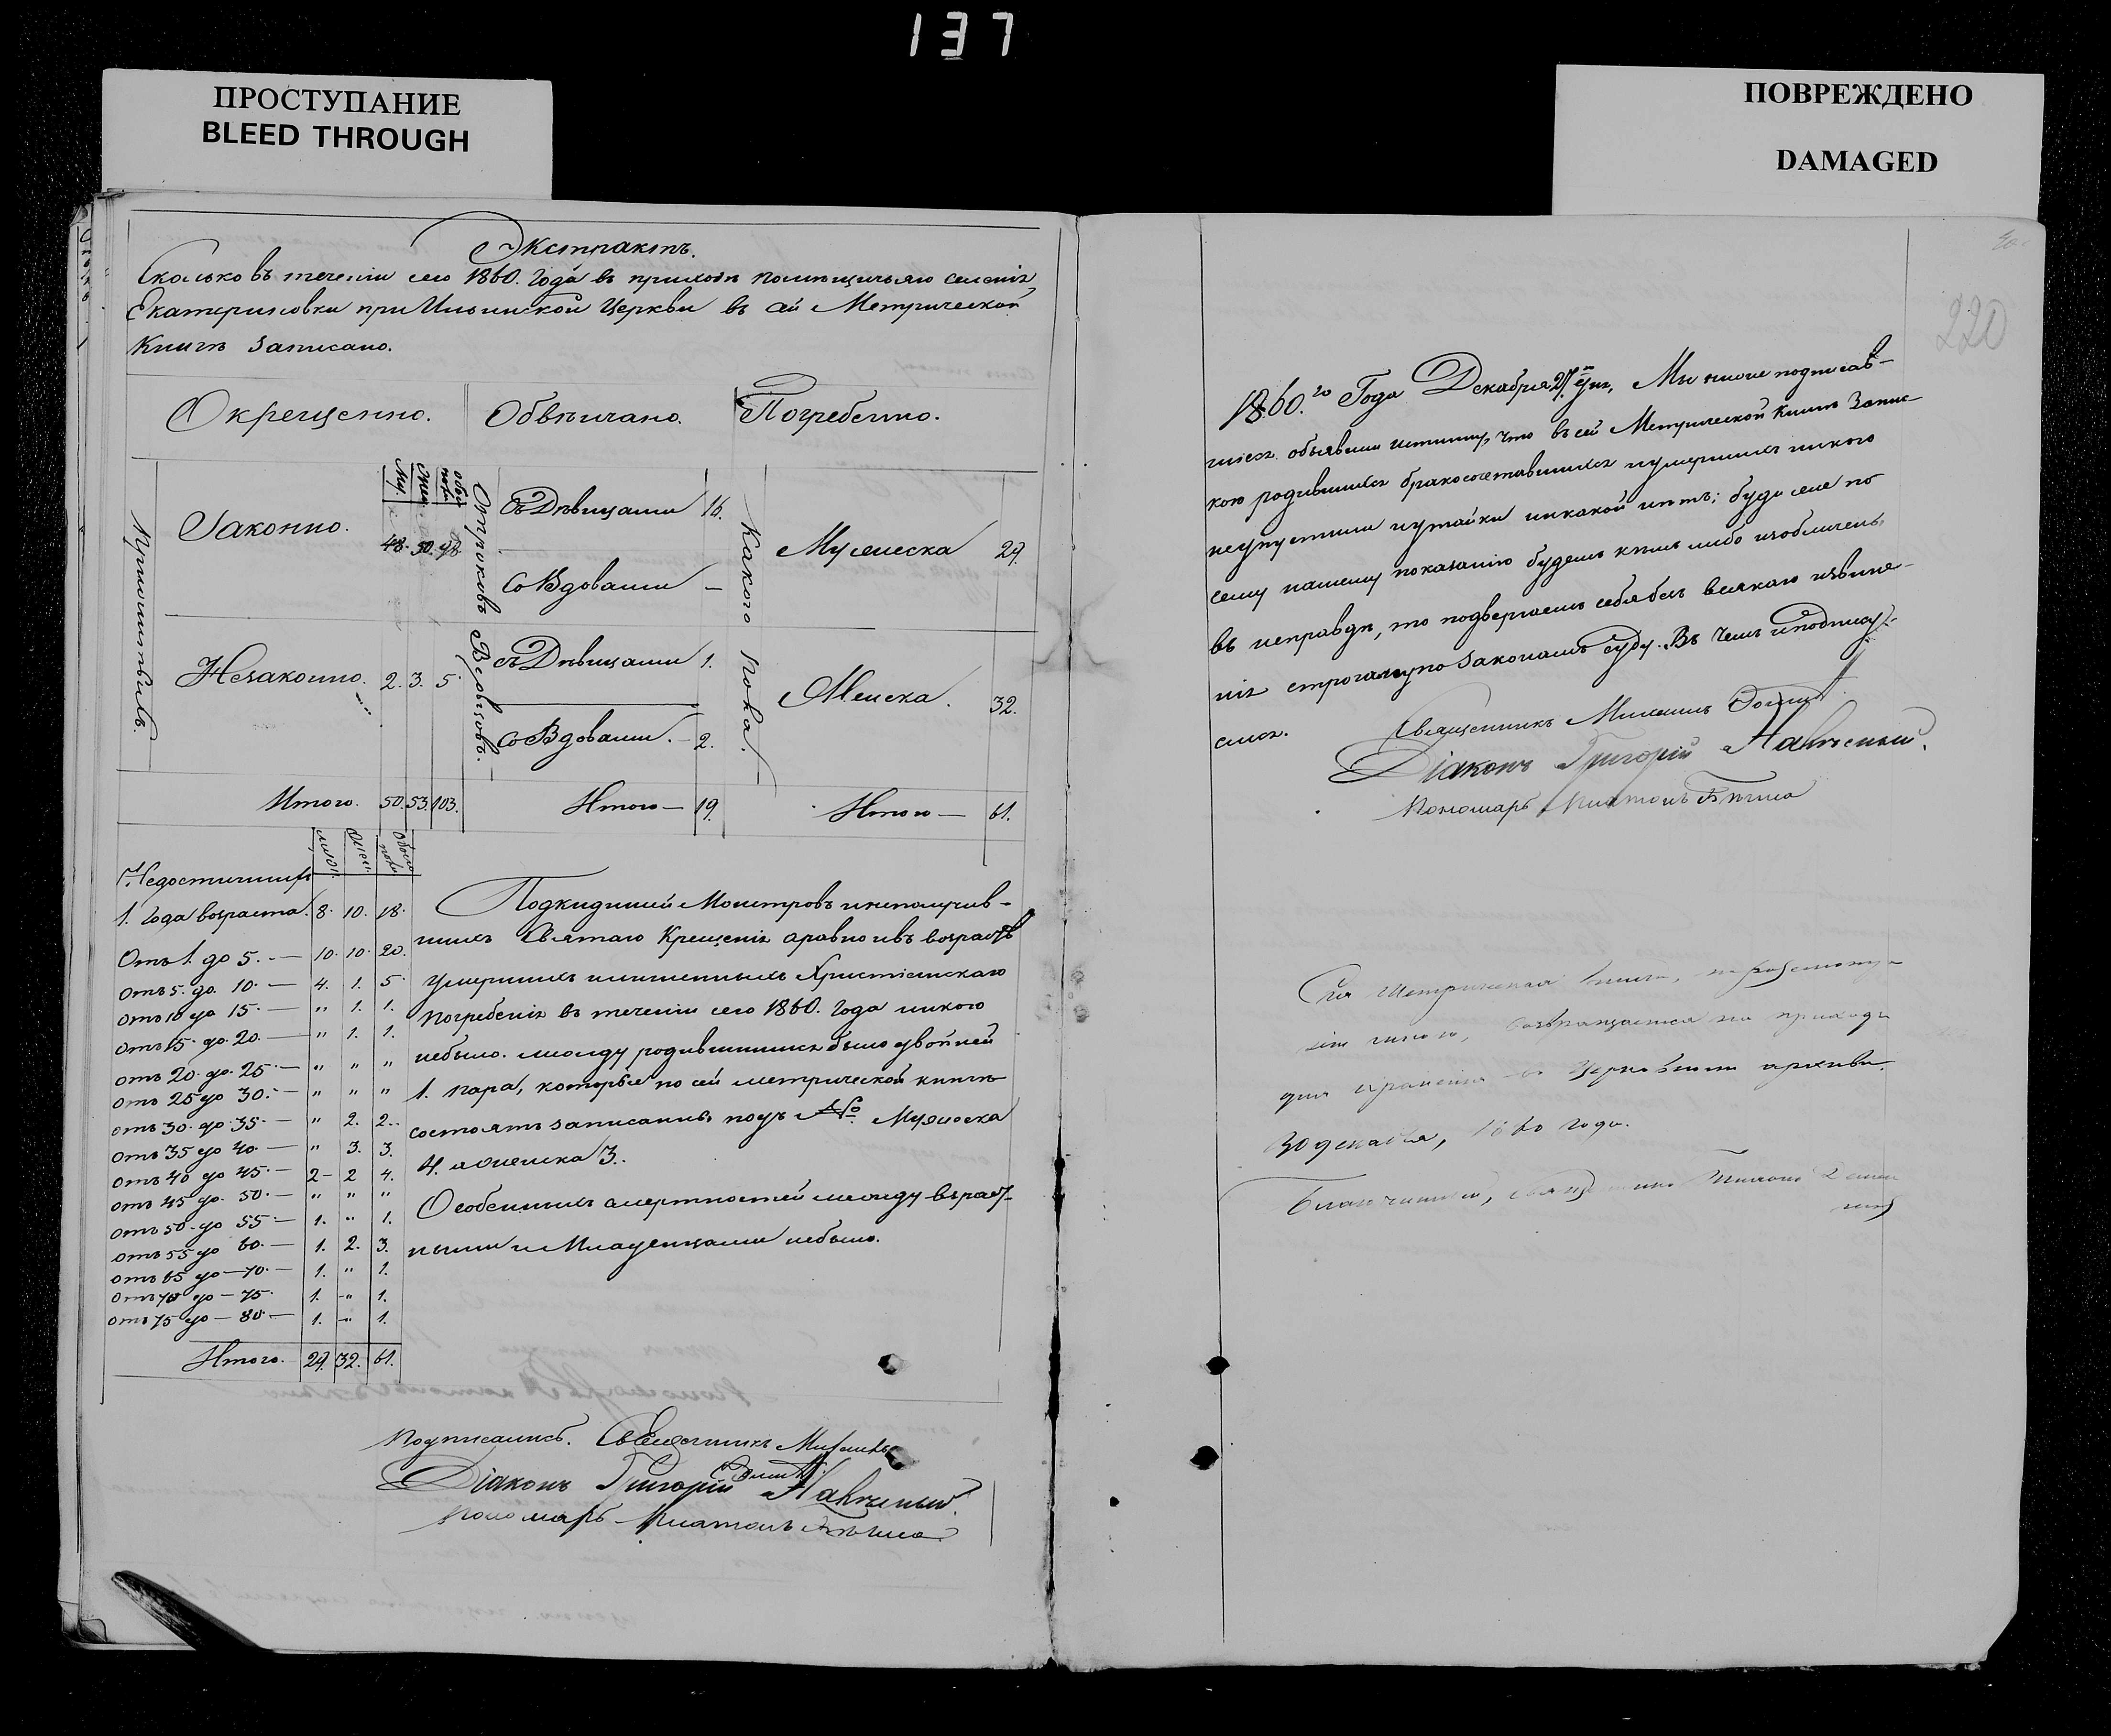 137
ПРОСТУПАНИЕ
BLEED THROUGH
ПОВРЕЖДЕНО
DAMAGED
Экстрактъ.
Сколько въ теченіи сего 1860. года въ приходѣ помѣщичьяго селенія
Екатериновки при Ильинской Церкви въ сей Метрической
Книгѣ записано.
Окрещенно.
Обвѣнчано.
Погребенно.
Муж.
Жен.
обое пола
Законно.
48. 50. 98
Незаконно. 2. 3. 5
Итого. 50. 53. 103.
Отроковъ
Съ Дѣвицами 16.
Со Вдовами —
Вдовцовъ.
съ Дѣвицами 1.
Со Вдовами. — 2.
Итого — 19.
Какого пола.
Мужеска 29.
Женска. 32.
Итого — 61.
Недостигшихъ
1. года возраста. 8. 10. 18.
Отъ 1. до 5. — 10. 10. 20.
Отъ 5. до 10. — 4. 1. 5
Отъ 10 до 15. — " 1. 1.
Отъ 15. до 20. — " 1. 1.
отъ 20. до 25. — " " "
отъ 25 до 30. — " " "
отъ 30. до 35. — " 2. 2.
отъ 35 до 40. — " 3. 3.
отъ 40 до 45. — 2 - 2 4.
отъ 45 до 50. — " " "
отъ 50. до 55 — 1. " 1.
отъ 55 до 60. — 1. 2. 3.
отъ 65 до — 70. — 1. " 1.
отъ 70 до — 75. 1. " 1.
отъ 75 до — 80. — 1. " 1.
Итого. 29. 32. 61.
Подкидишей Монстровъ инеполучив-
шихъ Святаго Крещенія аравно ивъ возрастѣ
умершихъ илишенныхъ Христіанскаго
погребенія въ теченіи сего 1860. года никого
небыло. между родившимися было двойней
1. пара, которые по сей метрической книгѣ
состоятъ записаны подъ № Мужеска
4. и женска 3.
Особенныхъ смертностей между взрос-
лыми и Младенцами небыло.
Подписались. Священникъ Михаилъ
Діаконъ Григорій
Пономарь Платонъ
220
1860.го Года Декабря 27. дня, Мы ниже подписав-
шіеся объявили истинну, что въ сей Метрической Книгѣ запис-
кою родившихся бракосочетавшихся иумершихъ никого
неупустили иутайки никакой нѣтъ; буде же по
сему нашему показанію будемъ кѣмъ либо изобличены
въ неправдѣ, то подвергаемъ себя безъ всякаго извине-
нія строгому по законамъ суду. Въ чемъ иподписуем-
смося.
Священникъ Михаилъ
Діаконъ Григорій
Пономарь Платонъ
Сія метрическая книга,
возвращается на приходъ
для храненія въ Церковномъ архивѣ.
30 декабря, 1860 года.
Благочинный, священникъ